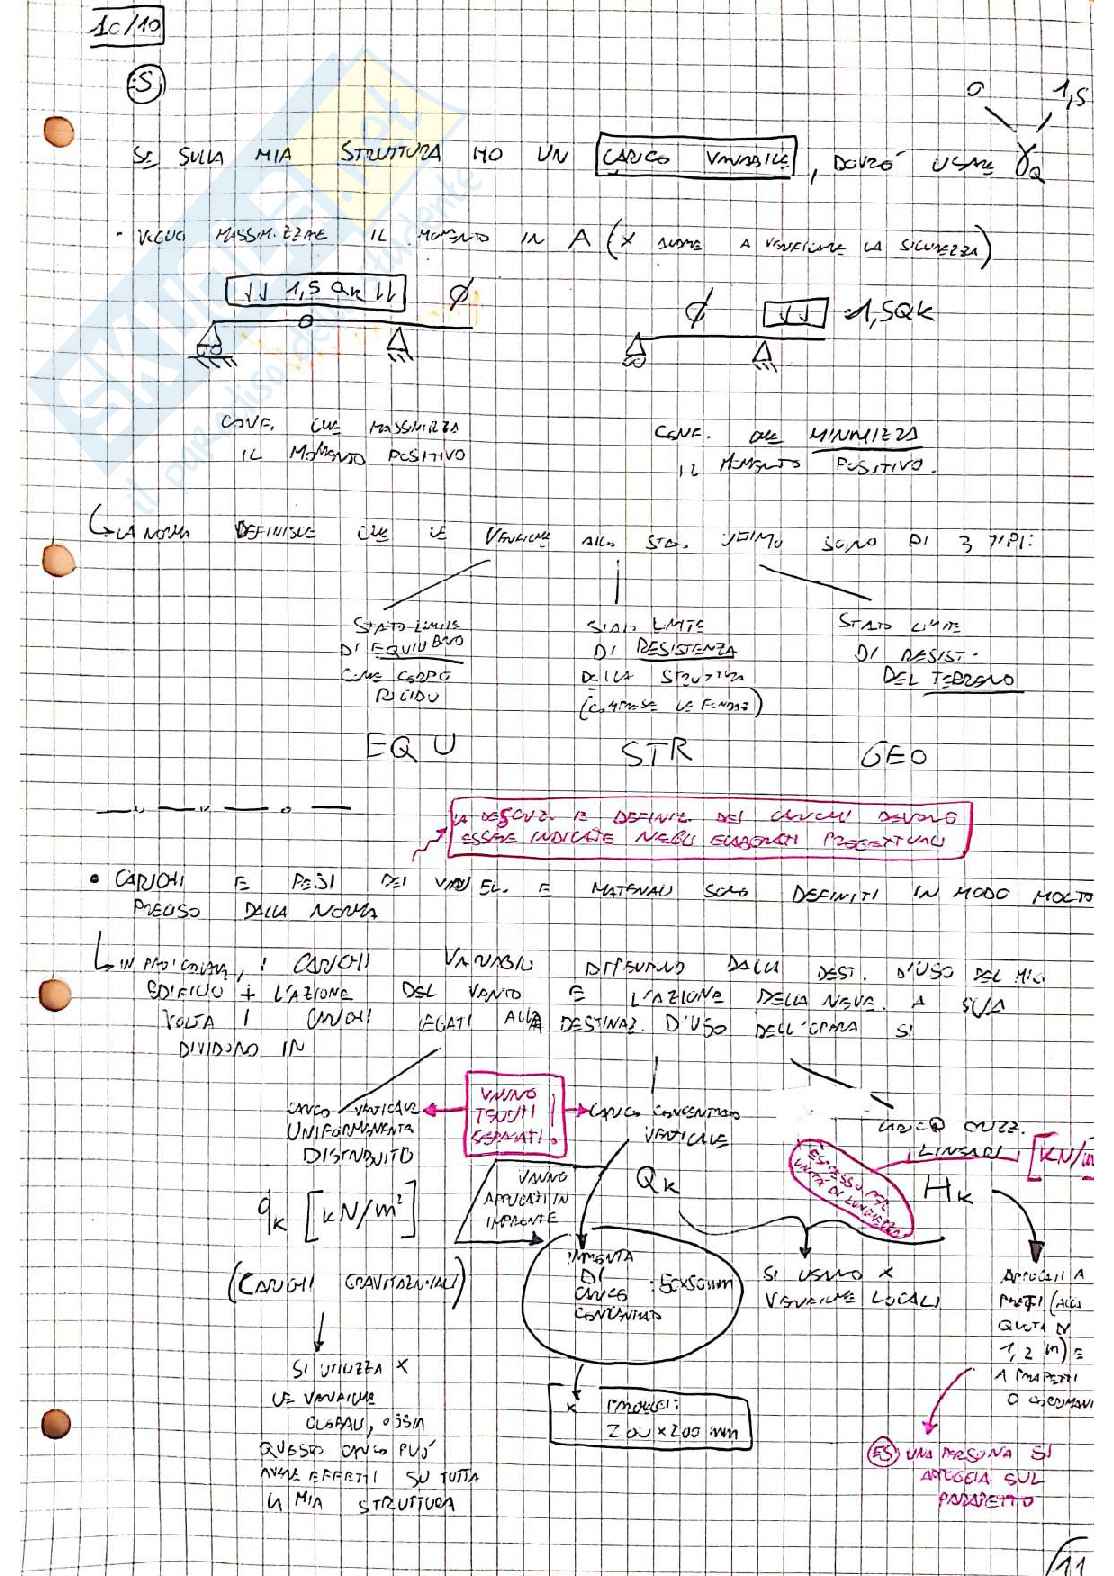 10/10
ES
0 1,5
SE SULLA MIA STRUTTURA HO UN CARICO VARIABILE, DOVRÒ USARE γQ
• VOGLIO MASSIMIZZARE IL MOMENTO IN A (X ANDARE A VERIFICARE LA SICUREZZA)
↓↓ 1,5 QK ↓↓ ∅
∅ ↓↓ 1,5QK
CONF. CHE MASSIMIZZA
IL MOMENTO POSITIVO
CONF. CHE MINIMIZZA
IL MOMENTO POSITIVO.
LA NORMA DEFINISCE CHE LE VERIFICHE ALLO STA. ULTIMO SONO DI 3 TIPI:
STATO LIMITE
DI EQUILIBRIO
COME CORPO
RIGIDO
EQU
STATO LIMITE
DI RESISTENZA
DELLA STRUTTURA
(COMPRESE LE FONDAZ)
STR
STATO LIMITE
DI RESIST.
DEL TERRENO
GEO
LA DESCRIZ. E DEFINIZ. DEI CARICHI DEVONO
ESSERE INDICATE NEGLI ELABORATI PROGETTUALI
• CARICHI E PESI DEI VARI EL. E MATERIALI SONO DEFINITI IN MODO MOLTO
PRECISO DALLA NORMA
IN PARTICOLARE, I CARICHI VARIABILI DIPENDONO DALLA DEST. D'USO DEL MIO
EDIFICIO + L'AZIONE DEL VENTO E L'AZIONE DELLA NEVE. A SUA
VOLTA I CARICHI LEGATI ALLA DESTINAZ. D'USO DELL'OPERA SI
DIVIDONO IN
CARICO VERTICALE
UNIFORMEMENTE
DISTRIBUITO
qK [kN/m²]
(CARICHI GRAVITAZIONALI)
SI UTILIZZA X
LE VERIFICHE
GLOBALI, OSSIA
QUESTO CARICO PUÒ
AVERE EFFETTI SU TUTTA
LA MIA STRUTTURA
VANNO
TENUTI
SEPARATI.
CARICO CONCENTRATO
VERTICALE
QK
VANNO
APPLICATI IN
IMPRONTE
IMPRONTA
DI
CARICO
CONCENTRATO
: 50x50mm
X PARCHEGGI:
200x200 mm
SI USANO X
VERIFICHE LOCALI
CARICO ORIZZ.
LINEARI [kN/m
HK
ESPRESSO PER
UNITÀ DI LUNGHEZZA
APPLICATI A
PARETI (ALLA
QUOTA DI
1,2 m) E
A PARAPETTI
O CORRIMANI
ES UNA PERSONA SI
APPOGGIA SUL
PARAPETTO
11
SKUOLA.net
il paradiso dello studente